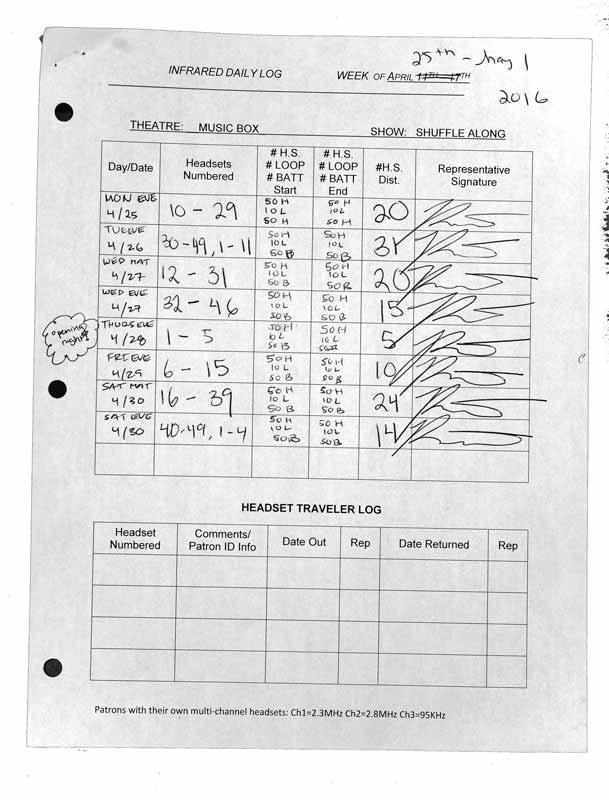 25th - May 1
INFRARED DAILY LOG WEEK OF APRIL 11TH - 17TH
2016
THEATRE: MUSIC BOX SHOW: SHUFFLE ALONG
Day/Date Headsets Numbered # H.S. # LOOP # BATT Start # H.S. # LOOP # BATT End #H.S. Dist. Representative Signature
MON EVE 4/25 10 - 29 50 H 10 L 50 H 50 H 10 L 50 H 20
TUE EVE 4/26 30-49, 1-11 50 H 10 L 50 B 50 H 10 L 50 B 31
WED MAT 4/27 12 - 31 50 H 10 L 50 B 50 H 10 L 50 B 20
WED EVE 4/27 32 - 46 50 H 10 L 50 B 50 H 10 L 50 B 15
opening night!
THURS EVE 4/28 1 - 5 50 H 10 L 50 B 50 H 10 L 5
FRI EVE 4/29 6 - 15 50 H 10 L 50 B 50 H 10 L 50 B 10
SAT MAT 4/30 16 - 39 50 H 10 L 50 B 50 H 10 L 50 B 24
SAT EVE 4/30 40-49, 1-4 50 H 10 L 50 B 50 H 10 L 50 B 14
HEADSET TRAVELER LOG
Headset Numbered Comments/ Patron ID Info Date Out Rep Date Returned Rep
Patrons with their own multi-channel headsets: Ch1=2.3MHz Ch2=2.8MHz Ch3=95KHz